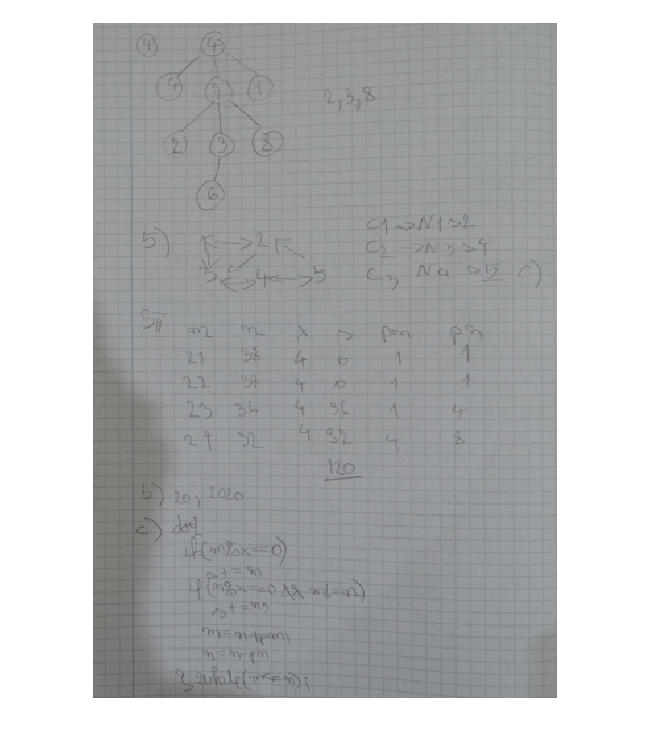 4
4 5 1
2, 3, 8
2 3 8
6
C1 -> N1 > 2
5) 1 2
C2 -> N3 > 4
3 4 5
C3 N4 > 5 c)
m n x s pm pn
21 38 4 0 1 1
22 37 4 0 1 1
23 36 4 36 1 4
24 32 4 32 4 8
120
b) 20, 2020
c) do{
if(m%x==0)
s+=m
if(n%x==0 && m!=n)
s+=n
m=m+pm
n=n-pn
}while(m<=n);